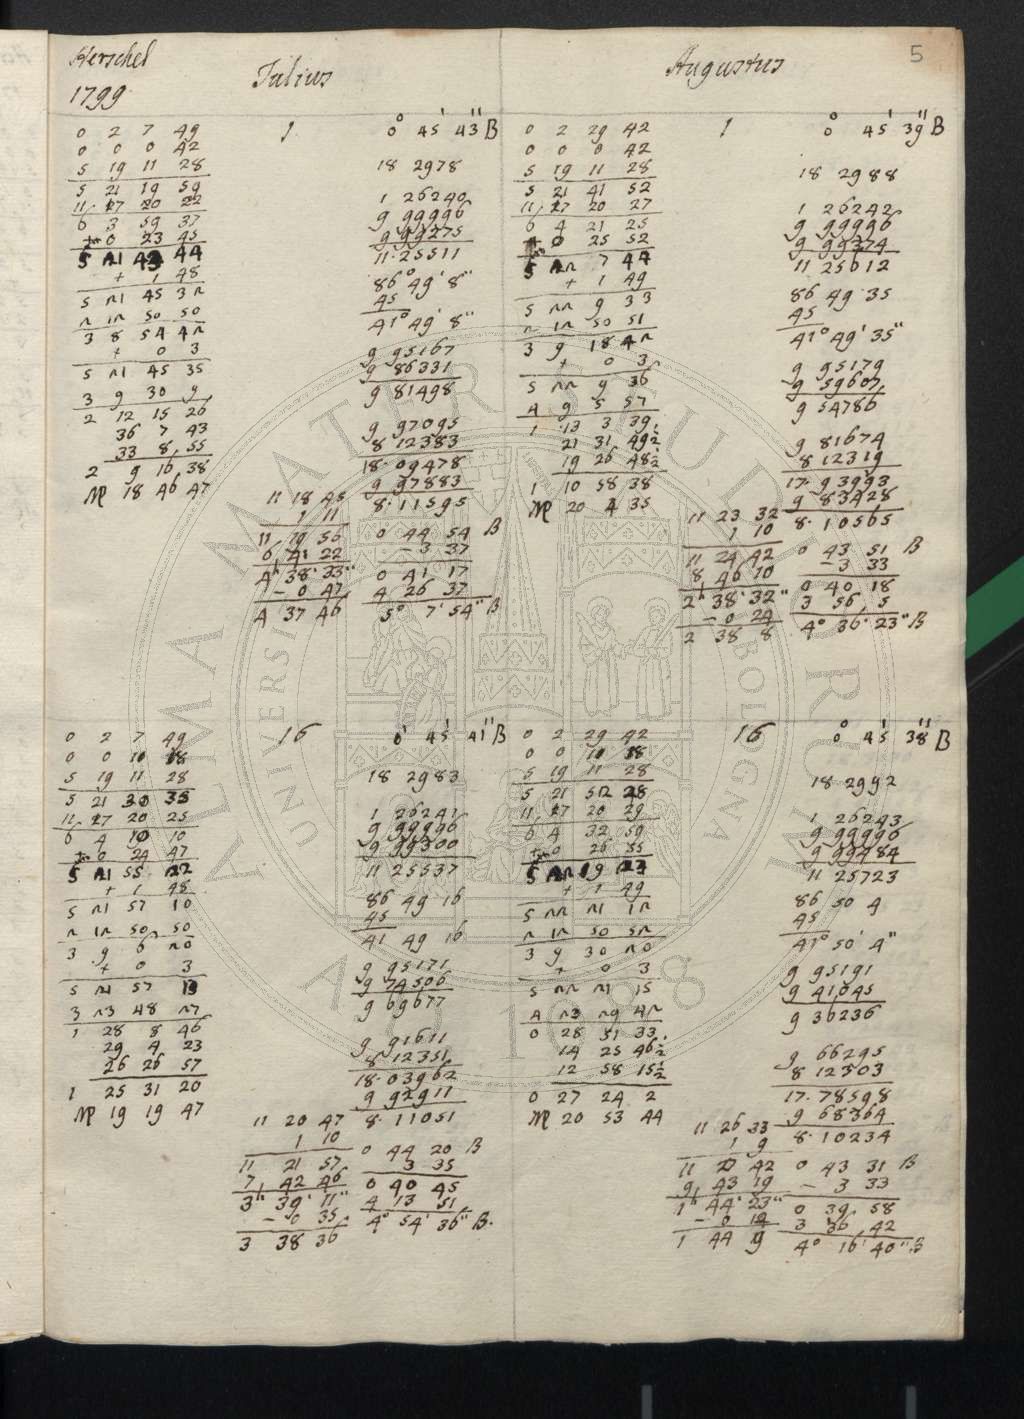 Herschel
1799
Julius
Augustus
5
1
0 2 7 49
0 0 0 42
5 19 11 28
5 21 19 59
11 27 20 22
6 3 59 37
+ 0 23 45
5 21 43 44
+ 1 48
5 21 45 32
2 12 50 50
3 8 54 42
+ 0 3
5 21 45 35
3 9 30 9
2 12 15 26
36 7 43
33 8 55
2 9 16 38
♍ 18 46 47
0° 45' 43" B
18 2978
1 26240
9 99996
9 99275
11.25511
86° 49' 8"
45
41° 49' 8"
9 95167
9 86331
9 81498
9 97095
8 12383
18.09478
9 97883
8.11595
11 18 45
1 11
11 19 56
6 41 22
4h 38' 33"
- 0 47
4 37 46
0 44 54 B
- 3 37
0 41 17
4 26 37
5° 7' 54" B
1
0 2 29 42
0 0 0 42
5 19 11 28
5 21 41 52
11 27 20 27
6 4 21 25
+ 0 25 52
5 22 7 44
+ 1 49
5 22 9 33
2 12 50 51
3 9 18 42
+ 0 3
5 22 9 36
4 9 5 57
1 13 3 39
21 31 49½
19 26 48½
1 10 58 38
♍ 20 4 35
0° 45' 39" B
18 2988
1 26242
9 99996
9 99374
11 25612
86 49 35
45
41° 49' 35"
9 95179
9 59607
9 54786
9 81674
8 12319
17.93993
9 83428
8.10565
11 23 32
1 10
11 24 42
8 46 10
2h 38' 32"
- 0 24
2 38 8
0 43 51 B
- 3 33
0 40 18
3 56 5
4° 36' 23" B
16
0 2 7 49
0 0 11 18
5 19 11 28
5 21 30 35
11 27 20 25
6 4 10 10
+ 0 24 47
5 21 55 22
+ 1 48
5 21 57 10
2 12 50 50
3 9 6 20
+ 0 3
5 21 57 13
3 23 48 27
1 28 8 46
29 4 23
26 26 57
1 25 31 20
♍ 19 19 47
0° 45' 41" B
18 2983
1 26241
9 99996
9 99300
11 25537
86 49 16
45
41 49 16
9 95171
9 74506
9 69677
9 91611
8 12351
18.03962
9 92911
8.11051
11 20 47
1 10
11 21 57
7 42 46
3h 39' 11"
- 0 35
3 38 36
0 44 20 B
3 35
0 40 45
4 13 51
4° 54' 36" B.
16
0 2 29 42
0 0 11 18
5 19 11 28
5 21 52 28
11 27 20 29
6 4 32 59
+ 0 26 35
5 22 19 23
+ 1 49
5 22 21 12
2 12 50 52
3 9 30 20
+ 0 3
5 22 21 15
4 23 29 42
0 28 51 33
14 25 46½
12 58 15½
0 27 24 2
♍ 20 53 44
0° 45' 38" B
18 2992
1 26243
9 99996
9 99484
11 25723
86 50 4
45
41° 50' 4"
9 95191
9 41045
9 36236
9 66295
8 12303
17.78598
9 68364
8.10234
11 26 33
1 9
11 27 42
9 43 19
1h 44' 23"
- 0 14
1 44 9
0 43 31 B
- 3 33
0 39 58
3 36 42
4° 16' 40" B
ALMA MATER STUDIORUM
UNIVERSI
BOLOGNA
A.D. 1088